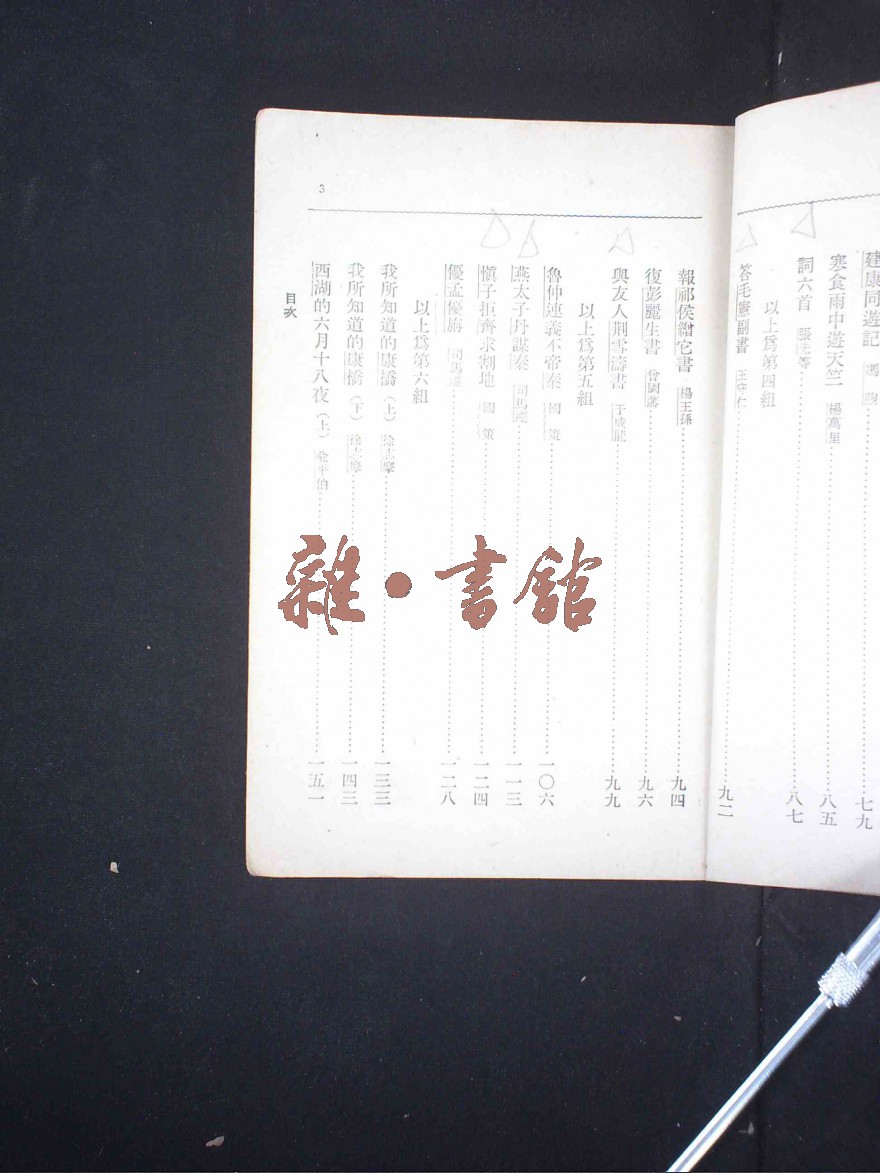 建康同遊記
七九
寒食雨中遊天竺 楊萬里
八五
詞六首 張先等
八七
以上爲第四組
答毛憲副書 王守仁
九二
3
報祁侯繒它書 楊王孫
九四
復彭麗生書 曾國藩
九六
與友人荆雪濤書 于成龍
九九
以上爲第五組
魯仲連義不帝秦 國策
一〇六
燕太子丹謀秦 司馬遷
一一三
愼子拒齊求割地 國策
一二四
優孟優旃 司馬遷
一二八
以上爲第六組
我所知道的康橋(上) 徐志摩
一三三
我所知道的康橋(下) 徐志摩
一四三
西湖的六月十八夜(上) 俞平伯
一五一
目次
雜·書館